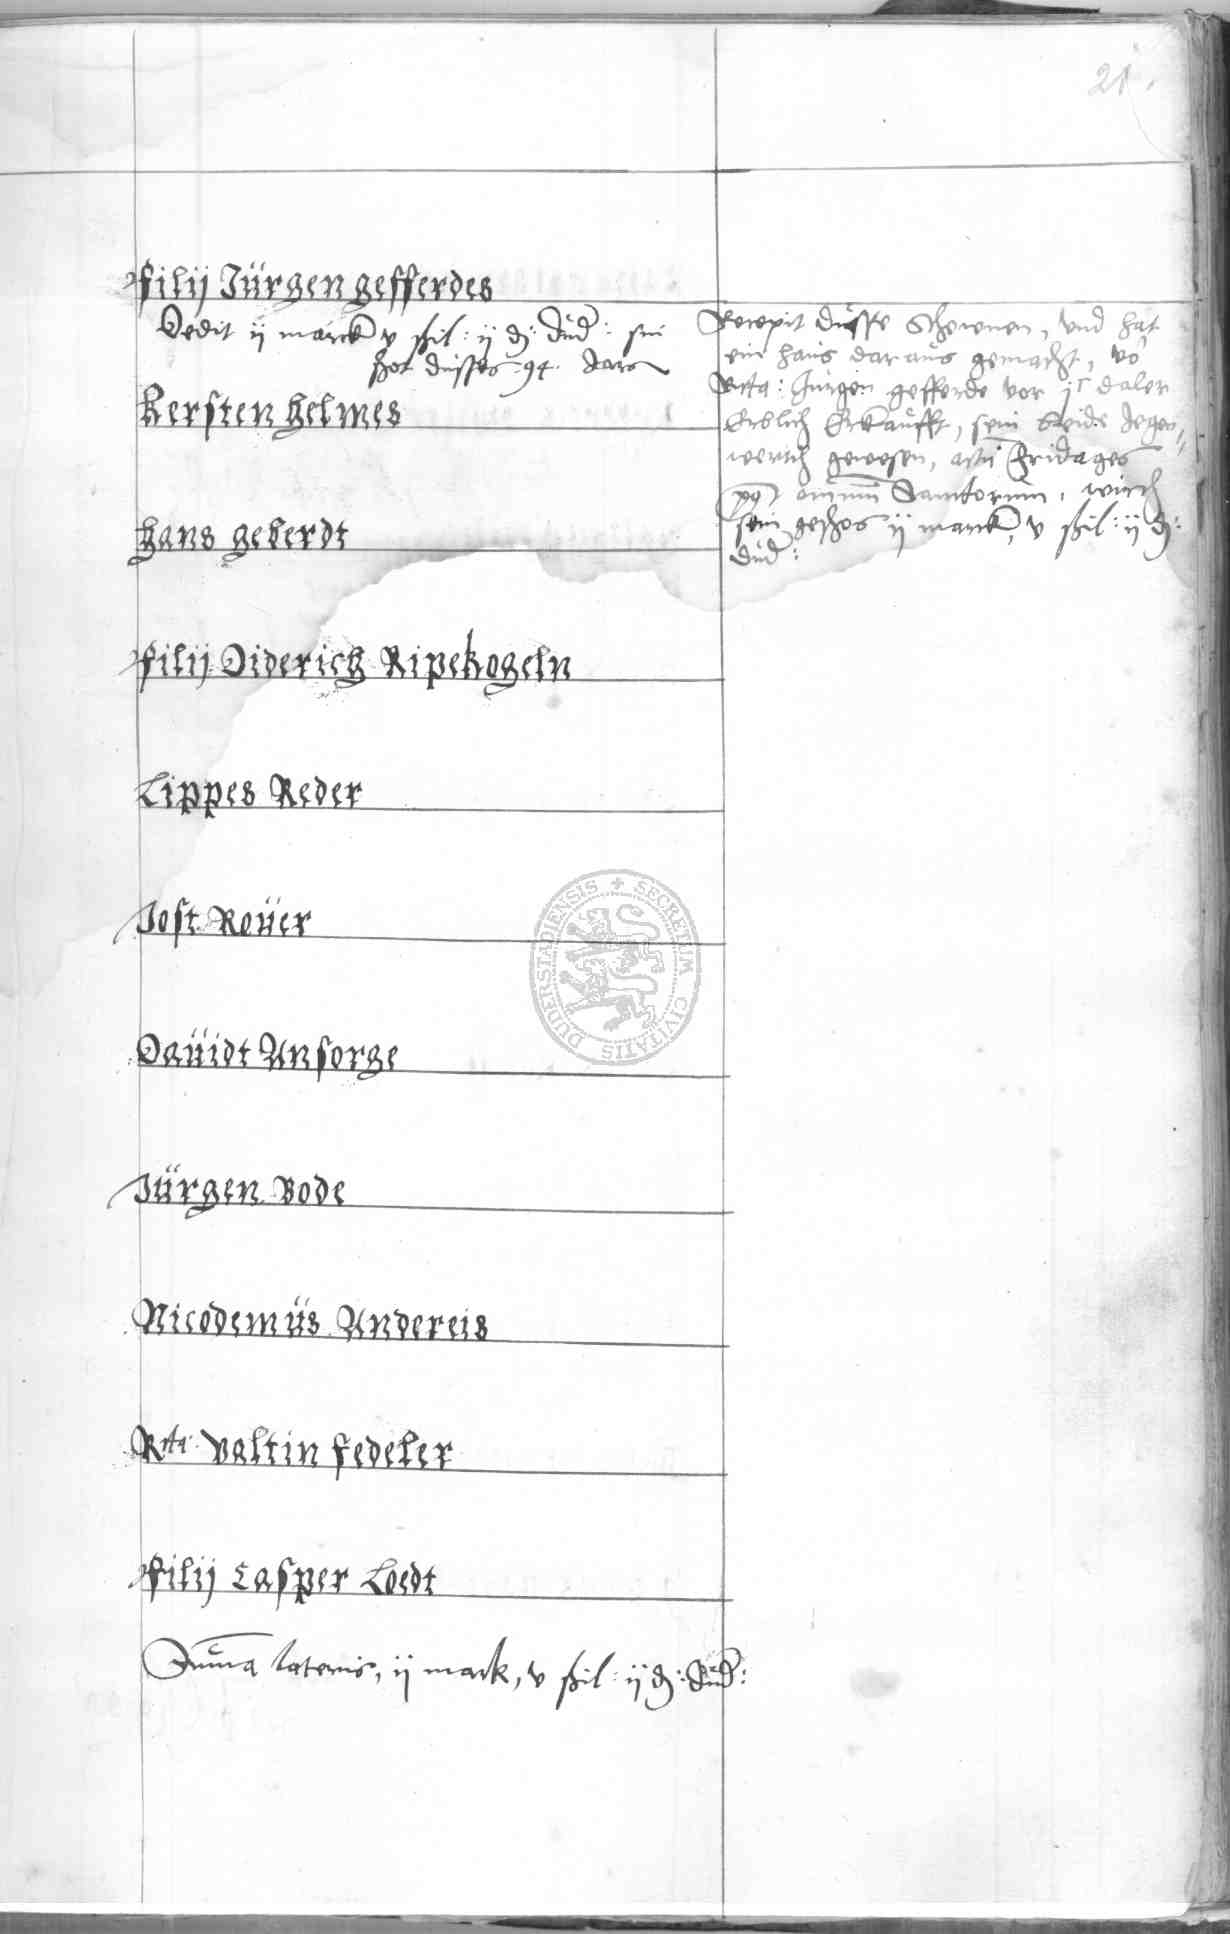 21.
Filij Jürgen Gefferdes
Dedit ij marck v ßil: ij ₰: dud: sin
schot dusses 94 Jars
Kersten Helmes
Hans Geberdt
Filij Diderich Ripekogeln
Lippes Reder
Jost Roüer
Daüidt Ansorge
Jürgen Bode
Nicodemüs Andereis
Rcta Valtin Fedeler
Filij Casper Loedt
Suma lateris, ij mark, v ßil: ij ₰: dud:
Recepit dusse Schewnen, vnd hat
ein haus daraus gemacht, vo
Rcta: Jurgen gefferde vor jc daler
Erblich Erkaufft, sein beide Jegen
wertch gewesen, Fridages
omnium Sanctorum, wirth
sein geschos ij marck, v ßil: ij ₰:
dud:
SECRETUM CIVITATIS DUDERSTADIENSIS